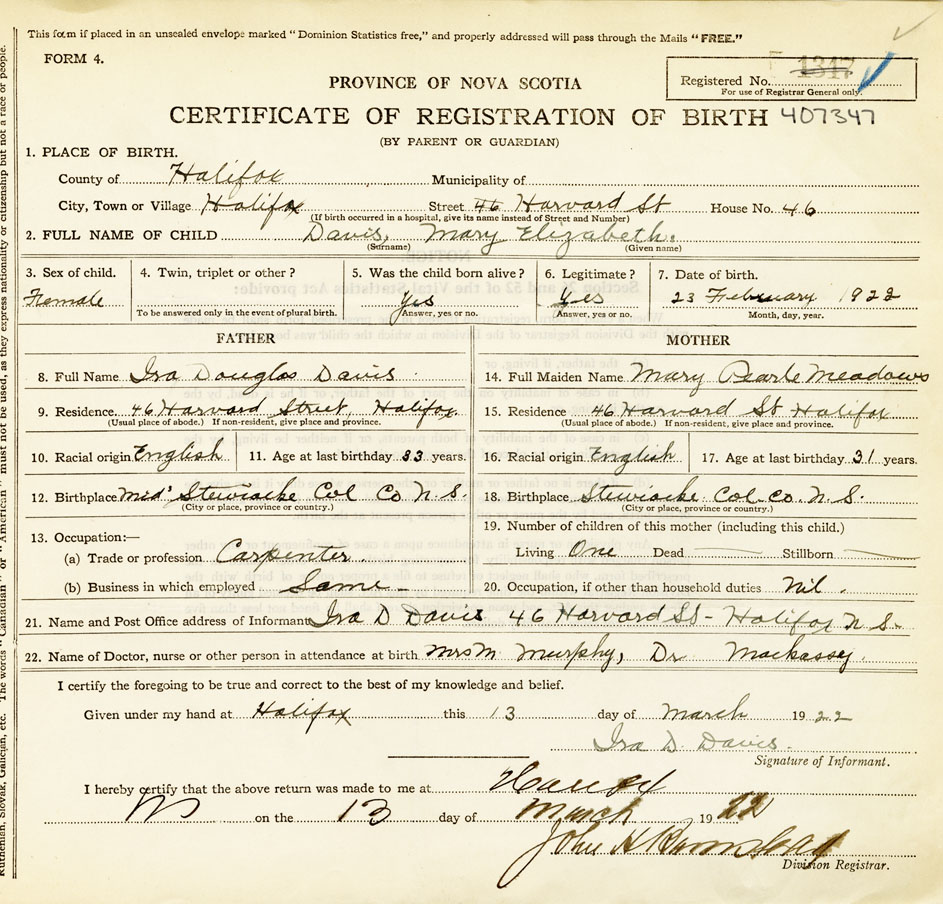 This form if placed in an unsealed envelope marked "Dominion Statistics free," and properly addressed will pass through the Mails "FREE."
FORM 4.
PROVINCE OF NOVA SCOTIA
Registered No. 1317
For use of Registrar General only.
CERTIFICATE OF REGISTRATION OF BIRTH 407347
(BY PARENT OR GUARDIAN)
1. PLACE OF BIRTH.
County of Halifax Municipality of
City, Town or Village Halifax Street 46 Harvard St House No. 46
(If birth occurred in a hospital, give its name instead of Street and Number)
2. FULL NAME OF CHILD Davis, Mary Elizabeth.
(Surname) (Given name)
3. Sex of child. 4. Twin, triplet or other? 5. Was the child born alive? 6. Legitimate? 7. Date of birth.
Female Yes Yes 23 February 1922
To be answered only in the event of plural birth. Answer, yes or no. Answer, yes or no. Month, day, year.
FATHER MOTHER
8. Full Name Ira Douglas Davis 14. Full Maiden Name Mary Pearle Meadows
9. Residence. 46 Harvard Street, Halifax 15. Residence 46 Harvard St Halifax
(Usual place of abode.) If non-resident, give place and province. (Usual place of abode.) If non-resident, give place and province.
10. Racial origin English 11. Age at last birthday 33 years. 16. Racial origin English 17. Age at last birthday 31 years.
12. Birthplace Mid' Stewiacke Col Co N.S. 18. Birthplace Stewiacke Col. Co. N.S.
(City or place, province or country.) (City or place, province or country.)
13. Occupation:— 19. Number of children of this mother (including this child.)
(a) Trade or profession Carpenter. Living One Dead Stillborn
(b) Business in which employed Same 20. Occupation, if other than household duties Nil.
21. Name and Post Office address of Informant Ira D Davis 46 Harvard St - Halifax N.S.
22. Name of Doctor, nurse or other person in attendance at birth Mrs M Murphy, Dr Mackassey.
I certify the foregoing to be true and correct to the best of my knowledge and belief.
Given under my hand at Halifax this 13 day of March 1922
Ira D. Davis.
Signature of Informant.
I hereby certify that the above return was made to me at Halifax
NS on the 13 day of March 1922
John H
Division Registrar.
Ruthenian, Slovak, Galician, etc. The words "Canadian" or "American" must not be used, as they express nationality or citizenship but not a race or people.